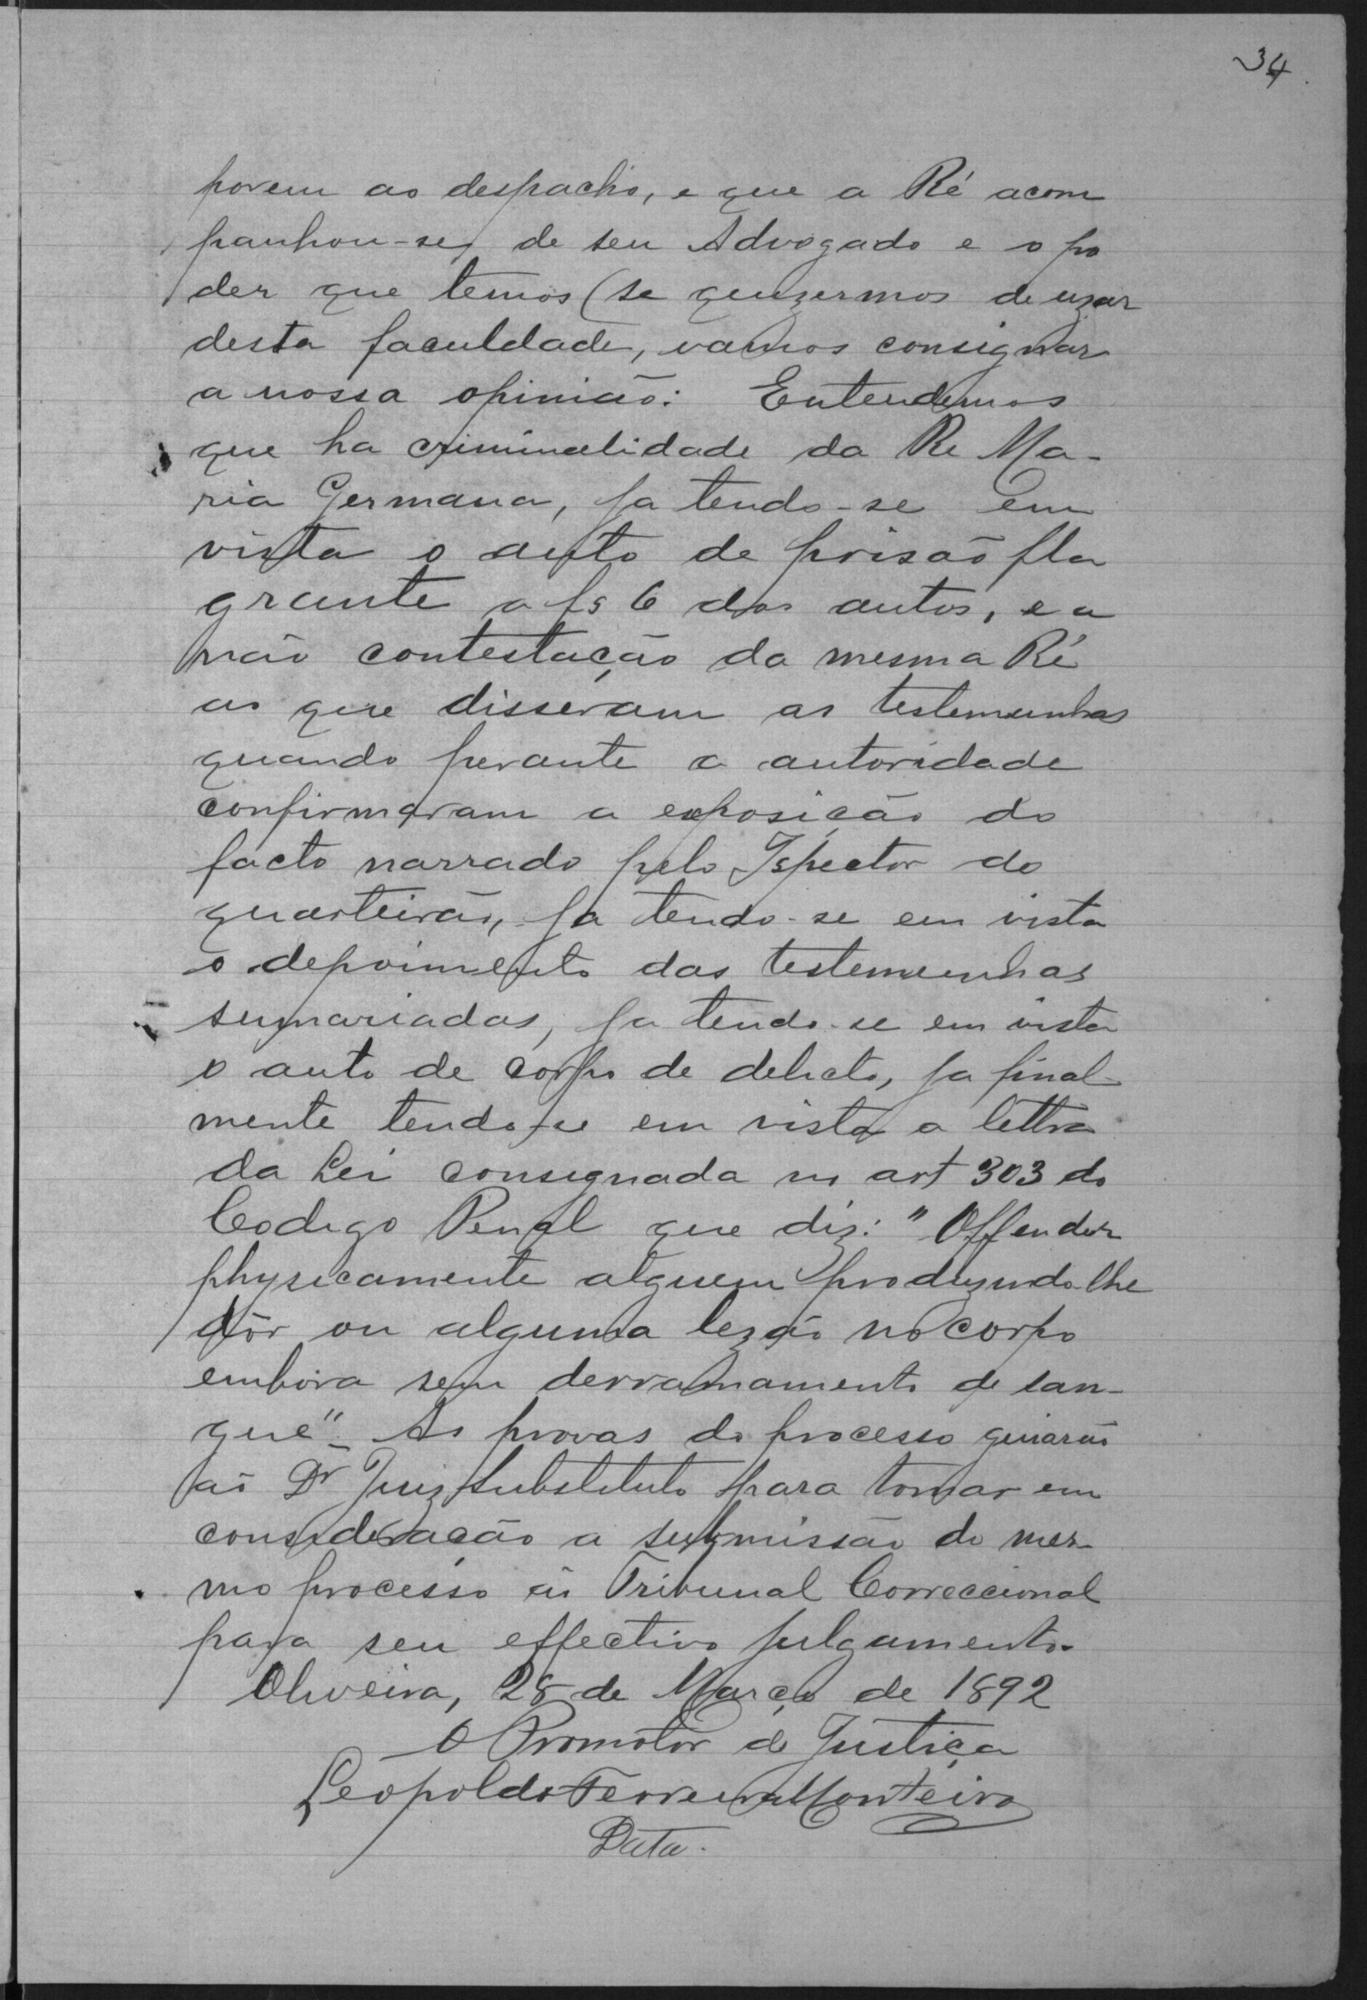 34
porem ao despacho, e que a Ré acom
panhou-se, de seu Advogado e o po
der que temos (se quizermos de uzar
desta faculdade, vamos consignar
a nossa opinião: Entendemos
que ha criminalidade da Re Ma-
ria Germana, ja tendo-se em
vista o auto de prisão fla
grante a fs 6 dos autos, e a
não contestação da mesma Ré
ao que disseram as testemunhas
quando perante a autoridade
confirmaram a exposição do
facto narrado pelo Ispector do
quarteirão, ja tendo-se em vista
o depoimento das testemunhas
sumariadas, ja tendo-se em vista
o auto de corpo de delicto, ja final-
mente tendo-se em vista a lettra
da Lei consignada no art 303 do
Codigo Penal que diz: "Offender
physicamente alguem produzindo-lhe
dôr ou alguma lezão no corpo
embora sem derramamento de san-
gue". As provas do processo guiarão
ao Dr Juiz substituto para tomar em
consideração a submissão do mes-
mo processo ao Tribunal Correccional
para seu effectivo julgamento.
Oliveira, 28 de Março de 1892
O Promotor de Justiça
Leopoldo Ferreira Monteiro
Data.